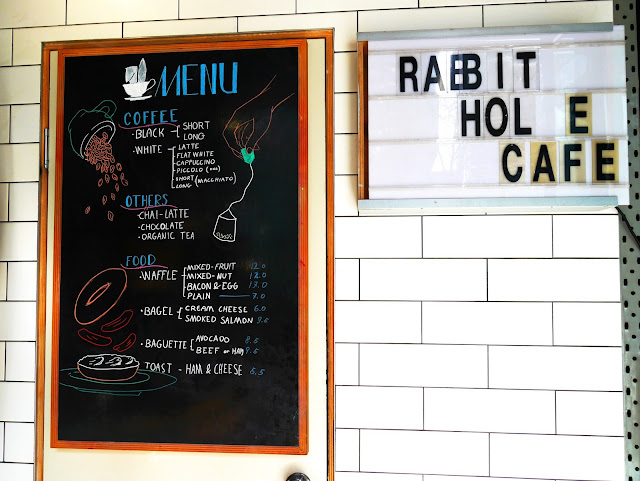 MENU
COFFEE
· BLACK - SHORT
LONG
· WHITE - LATTE
FLAT WHITE
CAPPUCCINO
PICCOLO
SHORT (MACCHIATO)
LONG
OTHERS
· CHAI-LATTE
· CHOCOLATE
· ORGANIC TEA
FOOD
· WAFFLE MIXED-FRUIT 12.0
MIXED-NUT 12.0
BACON & EGG 13.0
PLAIN 7.0
· BAGEL CREAM CHEESE 6.0
SMOKED SALMON 9.5
· BAGUETTE AVOCADO 8.5
BEEF or HAM 9.5
TOAST - HAM & CHEESE 5.5
RABBIT
HOLE
CAFE